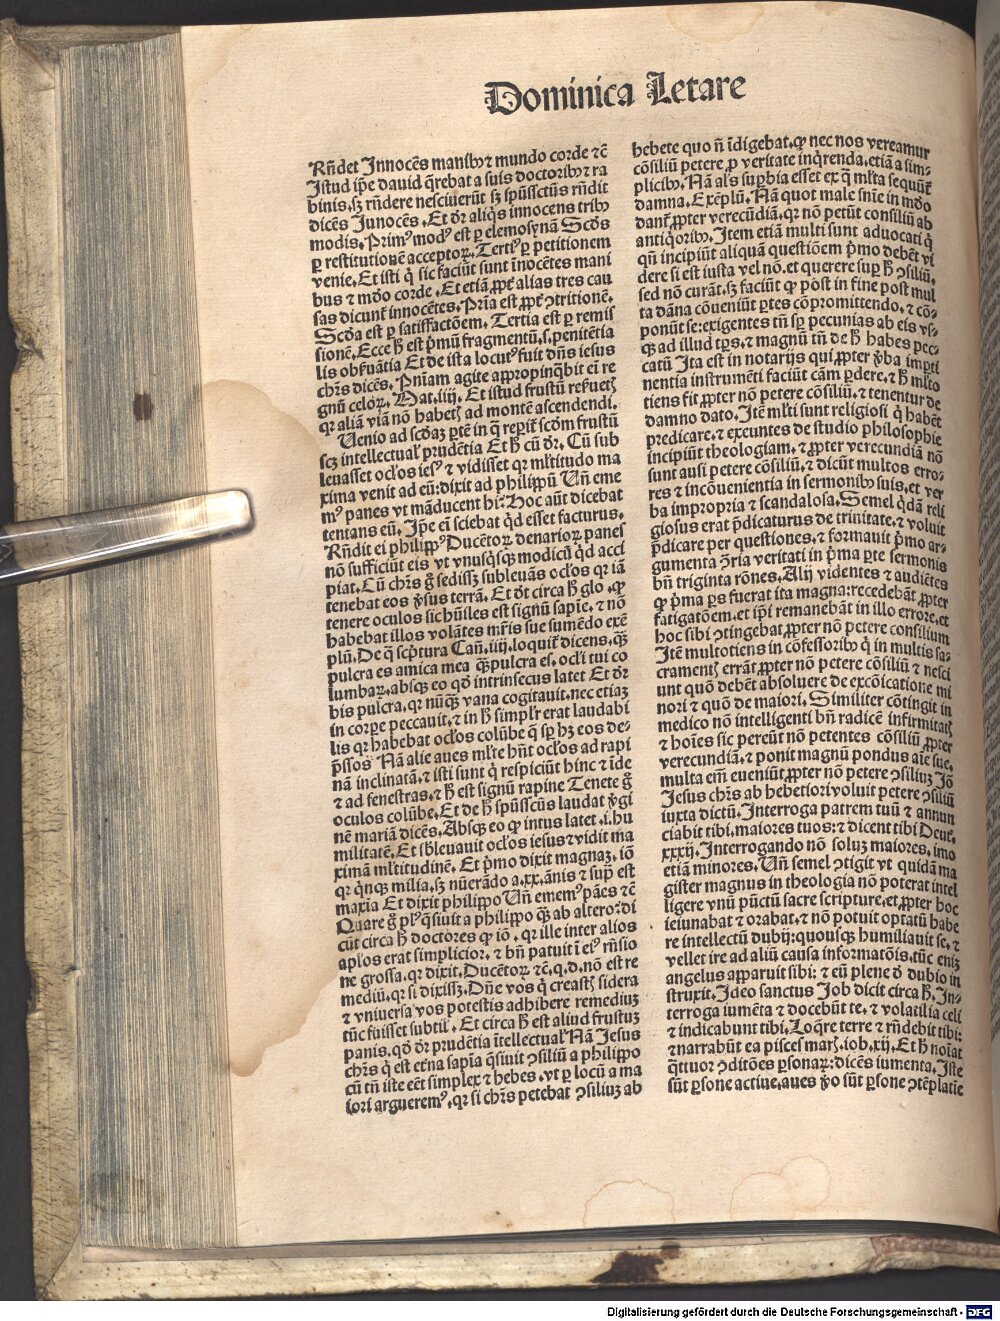 Dominica Letare
Rñdet Innocẽs manibꝰ ⁊ mundo corde ⁊cẽ
Istud ip̃e dauid q̃rebat a suis doctoribꝰ ⁊ ra
binis, sꝫ rñdere nesciuerũt sꝫ spũssctũs rñdit
dicẽs Innocẽs. Et dr̃ aliq̃s innocens tribꝰ
modis. Primꝰ modꝰ est ꝑ elemosynã Scd̃s
ꝑ restitutionẽ acceptoꝝ. Tertiꝰ ꝑ petitionem
venie. Et isti q̇ sic faciũt sunt ĩnocẽtes mani
bus ⁊ mũdo corde. Et etiã ꝓpt̃ alias tres cau
sas dicunt̃ innocẽtes. Pr̃ia est ꝓpt̃ ↄtritionẽ.
Scd̃a est ꝑ satisfactõem. Tertia est ꝑ remis
sionẽ. Ecce h̃ est p̃mũ fragmentũ .s. penitẽtia
lis obẽruãtia Et de ista locutꝰ fuit dñs iesus
chr̃s dicẽs. Pñiam agite appropinq̃bit ei re
gnũ celoꝝ. Mat. iiij. Et istud frustũ
qr aliã viã nõ habetꝭ ad montẽ ascendendi.
Uenio ad scd̃aꝫ ꝑtẽ in q̃ reꝑit̃ scd̃m frustũ
scꝫ intellectual' prudẽtia Et h̃ cũ dr̃. Cũ sub
leuasset ocl'os iesꝰ ⁊ vidisset qr ml'titudo ma
xima venit ad eũ: dixit ad philippũ Uñ eme
mꝰ panes vt mãducent hi: Hoc aũt dicebat
tentans eũ. Ip̃e em̃ sciebat q̃d esset facturus.
Rñdit ei philippꝰ Ducẽtoꝝ denarioꝝ panes
nõ sufficiũt eis vt vnusq̃sqꝫ modicũ q̃d acci
piat. Cũ chr̃s g̃ sedissꝫ subleuãs ocl'os qr iã
tenebat eos ṽsus terrã. Et dr̃t circa h̃ glo. ꝙ
tenere oculos sic hũiles est signũ sapĩe, ⁊ nõ
habebat illos volãtes mr̃is sue sumẽdo exẽ
plũ. De q̃ scp̃tura Cañ. iiij. loquit̃ dicens, q̃ꝫ
pulcra es amica mea q̃ꝫpulcra es, ocl'i tui co
lumbaꝝ, absqꝫ eo qd̃ intrinsecus latet Et dr̃
bis pulcra, qr nũq̃ꝫ vana cogitauit, nec etiaꝫ
in corꝑe peccauit, ⁊ in h̃ simpl'r erat laudabi
lis qr habebat ocl'os colũbe q̃ sꝑ hꝫ eos de⸗
p̃ssos Nã alie aues ml'te hñt ocl'os ad rapi
nã inclinatã, ⁊ isti sunt q̇ respiciũt hinc ⁊ ĩde
⁊ ad fenestras, ⁊ h̃ est signũ rapine Tenete g̃
oculos colũbe, Et de h̃ spũsscũs laudat ṽgi
nẽ mariã dicẽs. Absqꝫ eo ꝙ intus latet .i. hu
militatẽ. Et sb̃leuauit ocl'os iesus ⁊ vidit ma
ximã ml'titudinẽ. Et p̃mo dixit magnaꝫ, iõ
qr q̃nqꝫ milia, sꝫ nũerãdo a .xx. ãnis ⁊ sup̃ est
maxĩa Et dixit philippo Uñ ememꝰ pães ⁊cẽ
Quare g̃ plꝰ q̃siuit a philippo q̃ꝫ ab altero: di
cũt circa h̃ doctores ꝙ iõ, qr ille inter alios
apl'os erat simplicior, ⁊ bñ patuit ĩ eiꝰ rñsio
ne grossa, qr dixit. Ducẽtoꝝ ⁊cẽ. q. d. nõ est re
mediũ, qr si dixissꝫ. Dñe vos q̇ creastꝭ sidera
⁊ vniuersa vos potestis adhibere remediuꝫ
tũc fuisset subtil'. Et circa h̃ est aliud frustuꝫ
panis, qd̃ dr̃ prudẽtia ĩtellectual' Nã Jesus
chr̃s q̇ est et̃na sapĩa q̃siuit ↄsiliũ a philippo
cũ tñ iste eẽt simplex ⁊ hebes, vt ꝑ locũ a ma
iori argueremꝰ, qr si chr̃s petebat ↄsiliuꝫ ab
hebete quo ñ ĩdigebat, ꝙ nec nos vereamur
cõsiliũ petere ꝓ veritate inq̃renda, etiã a sim⸗
plicibꝰ. Nã al's suꝑbia esset ex q̃ ml'ta sequũt̃
damna. Exẽplũ. Nã quot male sñie in mũdo
dant̃ ꝓpter verecũdiã, qr nõ petũt consiliũ ab
antiq̃oribꝰ. Item etiã multi sunt aduocati q̇
qñ incipiũt aliquã questiõem p̃mo debẽt vi
dere si est iusta vel nõ, et querere suꝑ h̃ ↄsiliũ,
sed nõ curãt, sꝫ faciũt ꝙ post in fine post mul
ta dãna cõueniũt ꝑtes cõpromittendo, ⁊ cõ⸗
ponũt se: exigentes tñ sꝑ pecunias ab eis vs⸗
qꝫ ad illud tp̃s, ⁊ magnũ tñ de h̃ habes pec⸗
catũ Ita est in notarijs qui ꝓpter ṽba imꝑti
nentia instrumẽti faciũt cãm ꝑdere, ⁊ h̃ ml'to
tiens fit ꝓpter nõ petere cõsiliũ, ⁊ tenentur de
damno dato. Itẽ ml'ti sunt religiosi q̇ habẽt
predicare, ⁊ exeuntes de studio philosophie
incipiũt theologiam, ⁊ ꝓpter verecundiã nõ
sunt ausi petere cõsiliũ, ⁊ dicũt multos erro⸗
res ⁊ incõuenientia in sermonibꝰ suis, et ver
ba impropria ⁊ scandalosa. Semel q̃dã reli
giosus erat p̃dicaturus de trinitate, ⁊ voluit
p̃dicare per questiones, ⁊ formauit p̃mo ar⸗
gumenta ↄ̃ria veritati in p̃ma ꝑte sermonis
bñ triginta rõnes. Alij videntes ⁊ audiẽtes
ꝙ p̃ma ꝑs fuerat ita magna: recedebãt ꝓpter
fatigatõem, et ip̃i remanebãt in illo errore, et
hoc sibi ↄtingebat ꝓpter nõ petere consilium
Itẽ multotiens in cõfessoribꝰ q̇ in multis sa⸗
cramentꝭ errãt ꝓpter nõ petere cõsiliũ ⁊ nesci
unt quõ debẽt absoluere de excõicatione mi
nori ⁊ quõ de maiori. Similiter cõtingit in
medico nõ intelligenti bñ radicẽ infirmitatꝭ
⁊ hoĩes sic pereũt nõ petentes cõsiliũ ꝓpter
verecundiã, ⁊ ponit magnũ pondus aĩe sue,
multa em̃ eueniũt ꝓpter nõ petere ↄsiliuꝫ Iõ
Jesus chr̃s ab hebetiori voluit petere ↄsiliũ
iuxta dictũ. Interroga patrem tuũ ⁊ annun
ciabit tibi, maiores tuos: ⁊ dicent tibi Deut̃.
xxxij. Interrogando nõ soluꝫ maiores, imo
etiã minores. Uñ semel ↄtigit vt quidã ma
gister magnus in theologia nõ poterat intel
ligere vnũ pũctũ sacre scripture, et ꝓpter hoc
ieiunabat ⁊ orabat, ⁊ nõ potuit optatũ habe
re intellectũ dubij: quousqꝫ humiliauit se, ⁊
vellet ire ad aliũ causa informatõis, tũc eniꝫ
angelus apparuit sibi: ⁊ eũ plene d̃ dubio in
struxit. Ideo sanctus Job dicit circa h̃. In⸗
terroga iumẽta ⁊ docebũt te, ⁊ volatilia celi
⁊ indicabunt tibi. Loq̃re terre ⁊ rñdebit tibi:
⁊ narrabũt ea pisces marꝭ. iob. xij. Et h̃ noĩat
q̃ttuor ↄditões ꝑsonaꝝ: dicẽs iumenta. Iste
sũt ꝑsone actiue, aues ṽo sũt ꝑsone ↄtẽplatiẽ
Digitalisierung gefördert durch die Deutsche Forschungsgemeinschaft - DFG